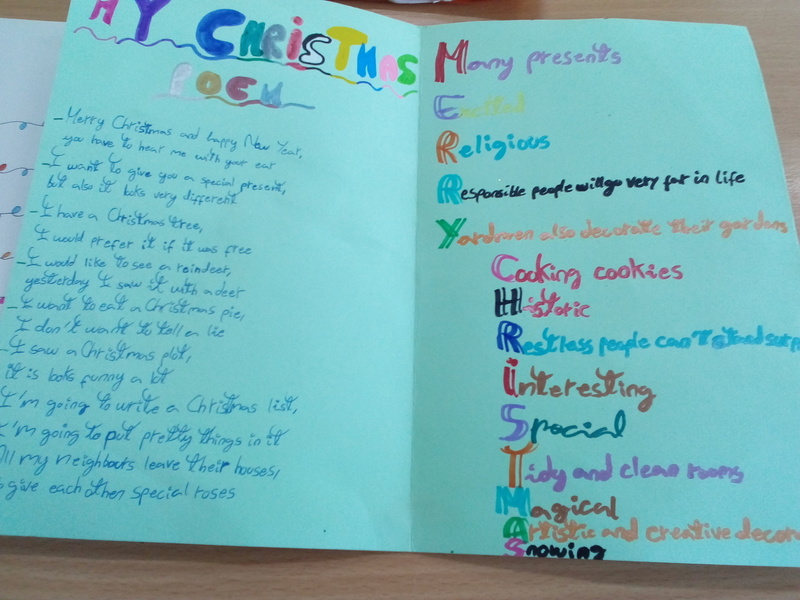 MY CHRISTMAS
POEM
-Merry Christmas and happy New Year,
you have to hear me with your ear
-I want to give you a special present,
but also it loks very different
-I have a Christmas tree,
I would prefer it if it was free
-I would like to see a reindeer,
yesterday I saw it with a deer
-I want to eat a Christmas pie,
I don't want to tell a lie
-I saw a Christmas plot,
it is loks funny a lot
I'm going to write a Christmas list,
I'm going to put pretty things in it
All my neighbours leave their houses,
to give each other special roses
Many presents
Excited
Religious
Responsible people will go very far in life
Yardmen also decorate their gardens
Cooking cookies
Historic
Restless people can't stand
Interesting
Special
Tidy and clean rooms
Magical
Artistic and creative decor
Snowing